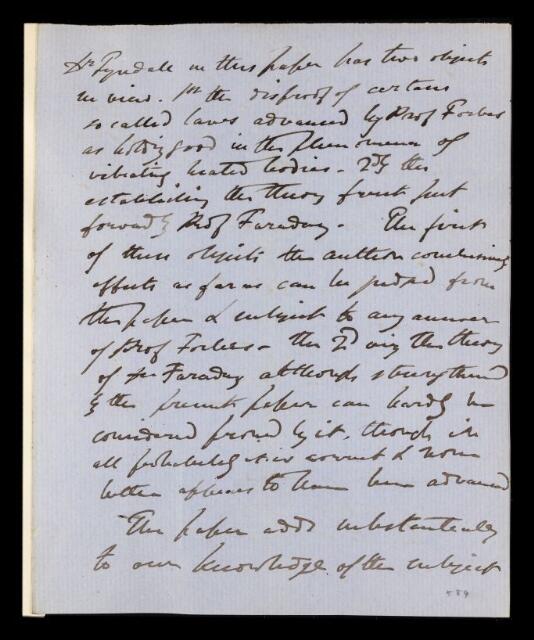 Dr Tyndale in this paper has two objects
in view. 1st the disproof of certain
so called laws advanced by Prof Forbes
as holding good in the phenomena of
vibrating heated bodies - 2dly the
establishing the theory first put
forward by Prof Faraday - The first
of these objects the author conclusively
effects as far as can be judged from
the paper & subject to any answer
of Prof Forbes - the 2d viz the theory
of Faraday although strengthened
by the present paper can hardly be
considered proved by it, though in
all probability it is correct & none
better appears to have been advanced
The paper adds substantially
to our knowledge of the subject
589